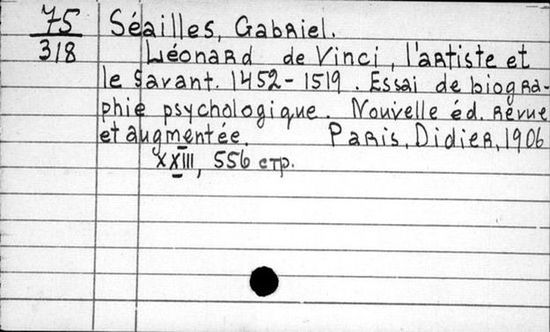 75 Séailles, Gabriel.
318 Léonard de Vinci, l'artiste et
le savant. 1452-1519. Essai de biogra-
phie psychologique. Nouvelle éd. revue
et augmentée. Paris, Didier, 1906
XXIII, 556 стр.